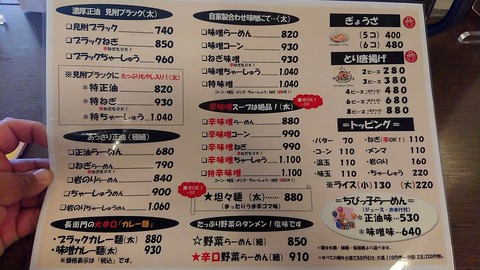 濃厚正油 見附ブラック(太)
□見附ブラック 740
□ブラックねぎ 850
□ブラックちゃーしゅう 960
※見附ブラックに たっぷりもやし入り!(太)
□特正油 820
□特ねぎ 930
□特ちゃーしゅう 1.040
あっさり正油(極細)
□正油らーめん 680
□ねぎらーめん 790
□岩のりらーめん 840
□ちゃーしゅうめん 900
□岩のりちゃーしゅうめん 1.060
長衛門の大辛口「カレー麺」
・ブラックカレー麺(太) 880
・味噌カレー麺(太) 930
※価格表示は「税込」です。
自家製合わせ味噌にて…(太)
□味噌らーめん 820
□味噌コーン 930
□ねぎ味噌 930
□味噌ちゃーしゅう 1.040
□特味噌 1.040
辛味噌スープは絶品!(太)
□辛味噌らーめん 880
□辛味噌コーン 990
□ねぎ辛味噌 990
□辛味噌ちゃーしゅう 1.100
□特辛味噌 1.100
★坦々麺(太)…… 880
(まったりうま辛ゴマ味)
たっぷり野菜のタンメン!塩味です
☆野菜らーめん(細) 850
★辛口野菜らーめん(細) 910
ぎょうざ
(5コ) 400
(6コ) 480
とり唐揚げ
2ピース 280
3ピース 380
4ピース 480
6ピース 680
8ピース 880
＝トッピング＝
・バター 70
・ねぎ(辛OK!) 110
・コーン 110
・メンマ 110
・温玉 110
・岩のり 160
・味玉 110
※ライス(小)130 (大)220
＝ちびっ子らーめん＝
(ジュース・お子様付)
＊正油味…530
＊味噌味…640